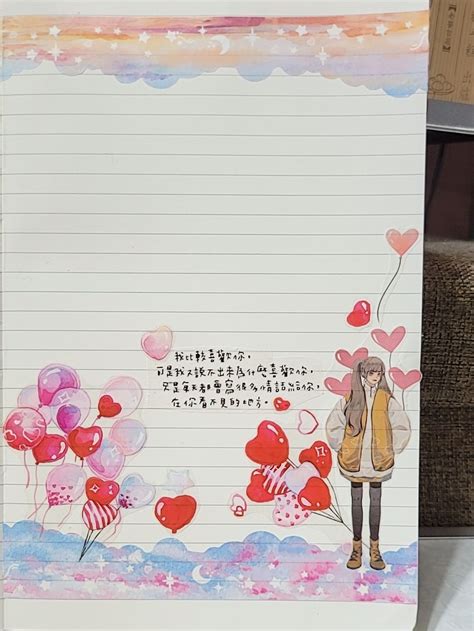 我比較喜歡你,
可是我又說不出來為什麼喜歡你,
只是每天都會寫很多情話給你,
在你看不見的地方。